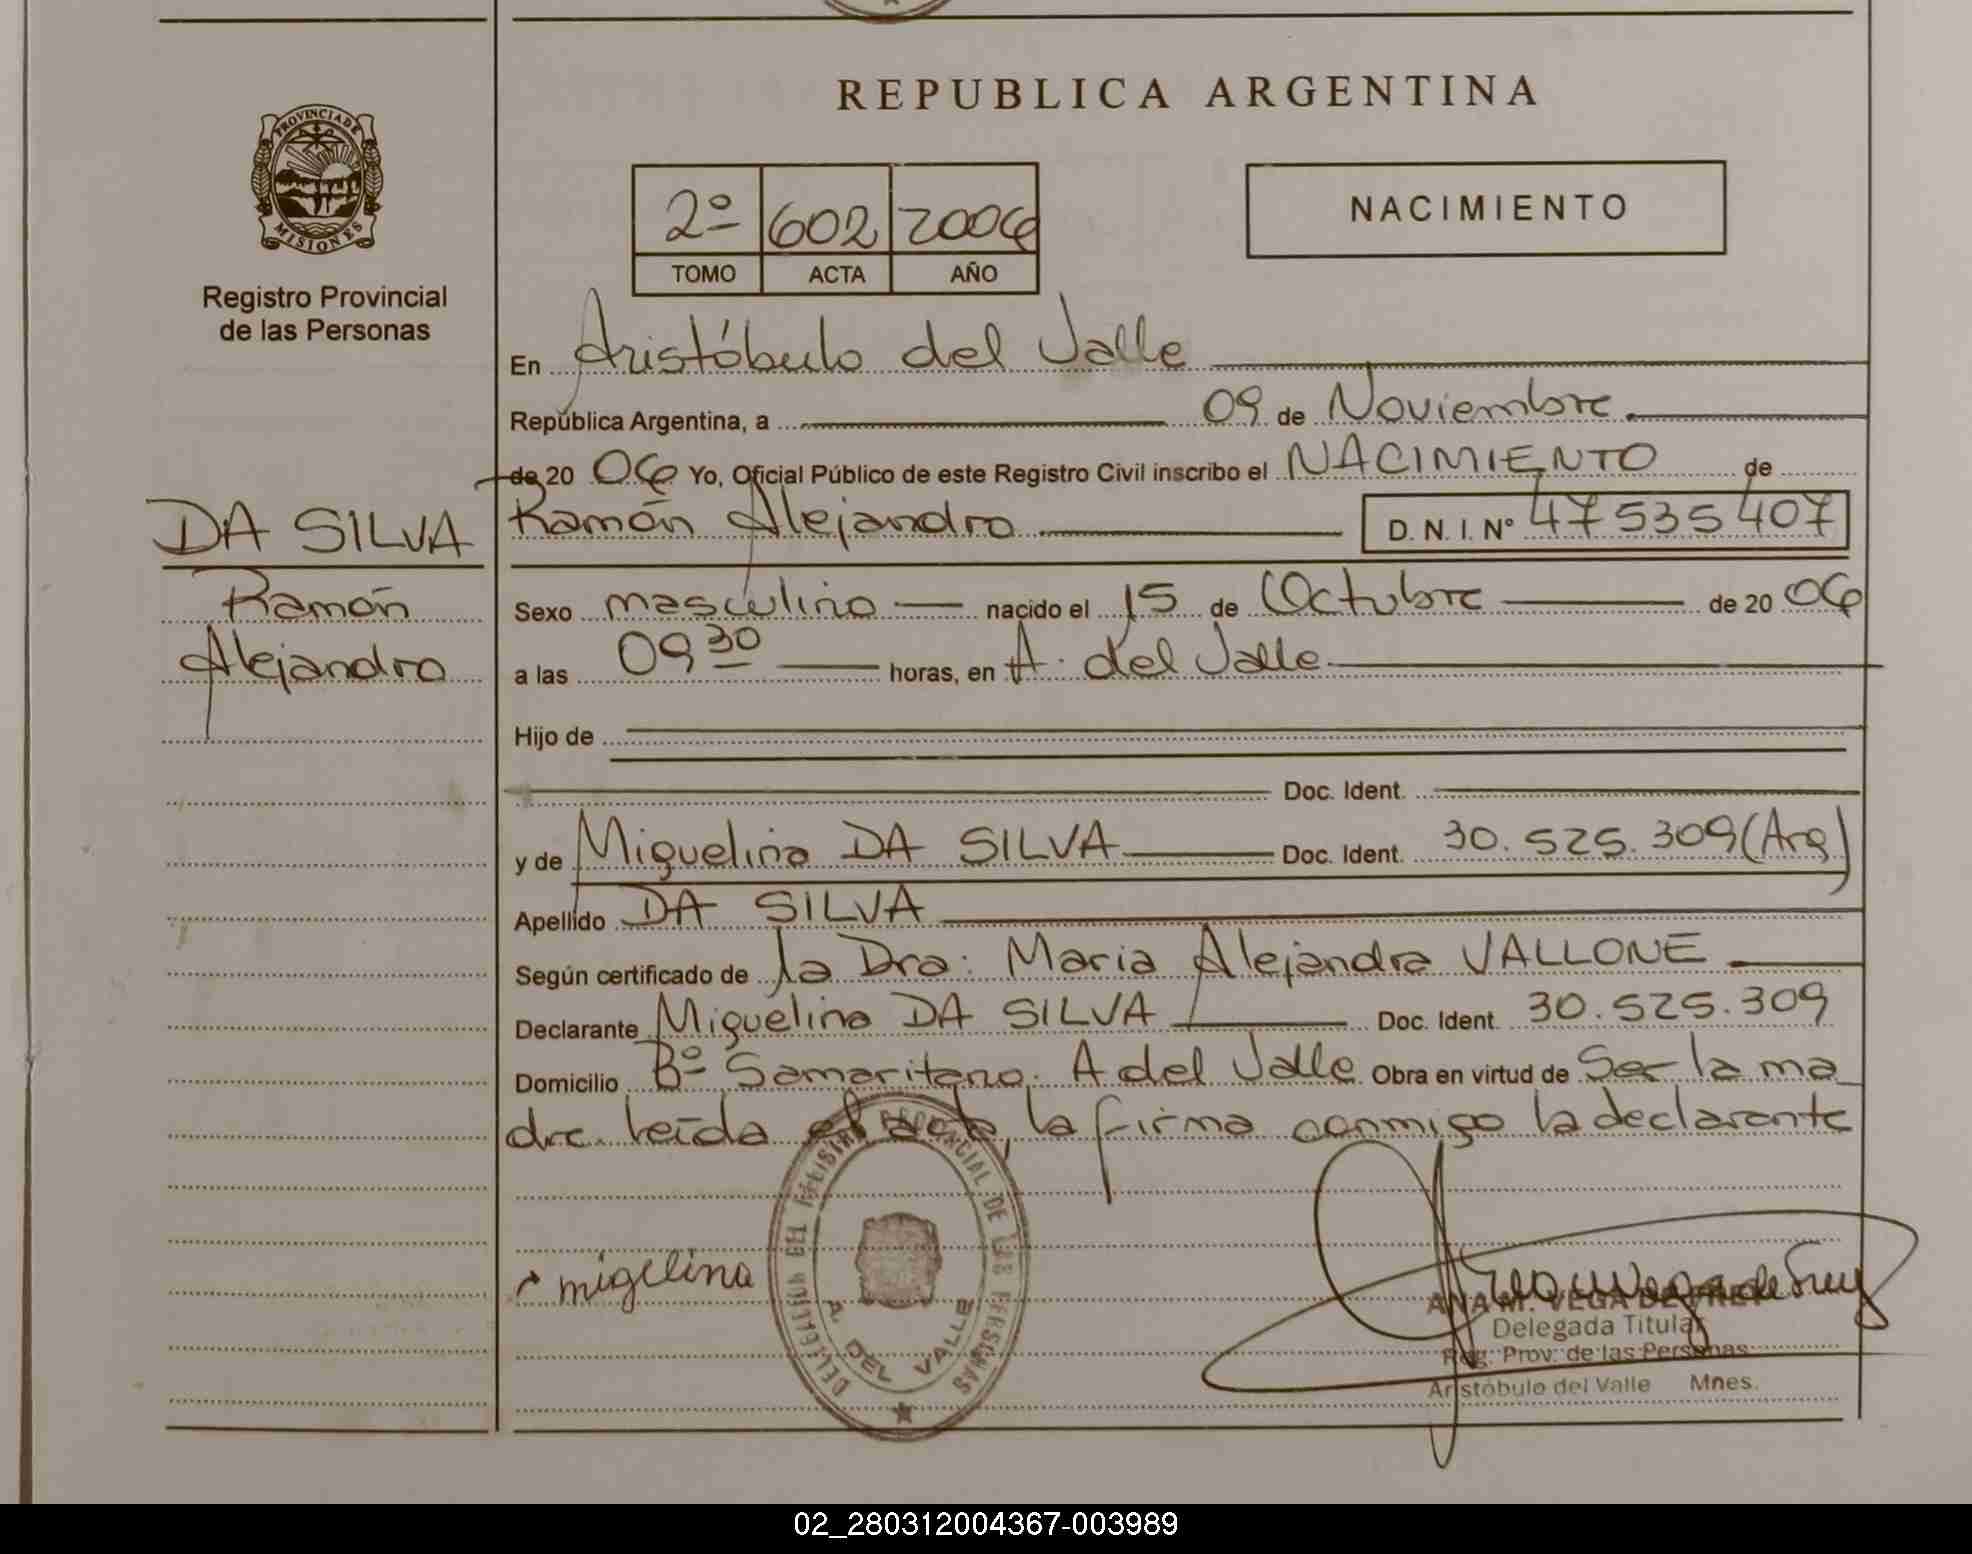 REPUBLICA ARGENTINA
PROVINCIA DE
MISIONES
Registro Provincial
de las Personas
2º 602 2006
TOMO ACTA AÑO
NACIMIENTO
En Aristóbulo del Valle
República Argentina, a 09 de Noviembre
de 20 06 Yo, Oficial Público de este Registro Civil inscribo el NACIMIENTO de
Ramón Alejandro D. N. I. Nº 47535407
DA SILVA
Ramón
Alejandro
Sexo masculino nacido el 15 de Octubre de 20 06
a las 09 30 horas, en A. del Valle
Hijo de
Doc. Ident.
y de Miguelina DA SILVA Doc. Ident. 30.525.309 (Arg)
Apellido DA SILVA
Según certificado de la Dra: Maria Alejandra VALLONE
Declarante Miguelina DA SILVA Doc. Ident. 30.525.309
Domicilio Bº Samaritano. A del Valle Obra en virtud de Ser la ma
dre. leída el acta, la firma conmigo la declarante
migelina
DELEGACION DEL REGISTRO PROVINCIAL DE LAS PERSONAS
A. DEL VALLE
ANA M. VEGA DE FREY
Delegada Titular
Reg. Prov. de las Personas
Aristóbulo del Valle Mnes.
02_280312004367-003989